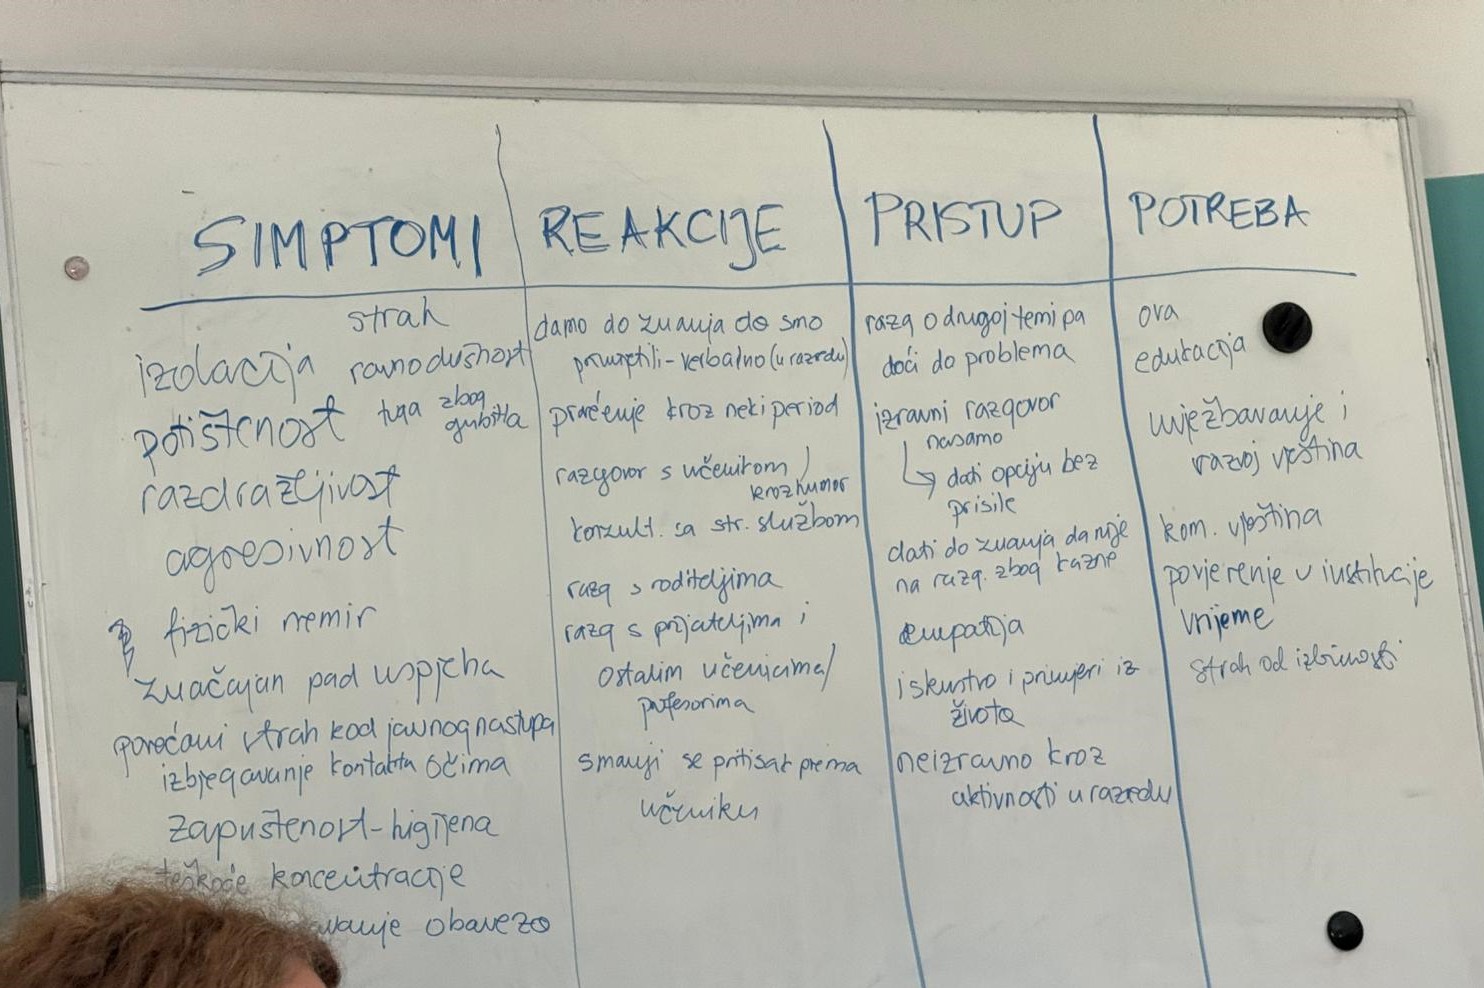 SIMPTOMI
strah
izolacija
ravnodušnost
potištenost
tuga zbog
gubitka
razdražljivost
agresivnost
fizički nemir
značajan pad uspjeha
povećani strah kod javnog nastupa
izbjegavanje kontakta očima
zapuštenost-higijena
teškoće koncentracije
obaveza
REAKCIJE
damo do znanja da smo
primjetili-verbalno (u razredu)
praćenje kroz neki period
razgovor s učenikom /
kroz humor
konzult. sa str. službom
razg s roditeljima
razg s prijateljima i
ostalim učenicima/
profesorima
smanji se pritisak prema
učeniku
PRISTUP
razg o drugoj temi pa
doći do problema
izravni razgovor
nasamo
↳ dati opciju bez
prisile
dati do znanja da nije
na razg. zbog kazne
empatija
iskustvo i primjeri iz
života
neizravno kroz
aktivnosti u razredu
POTREBA
ova
edukacija
uvježbavanje i
razvoj vještina
kom. vještina
povjerenje u institucije
vrijeme
strah od izbirnosti